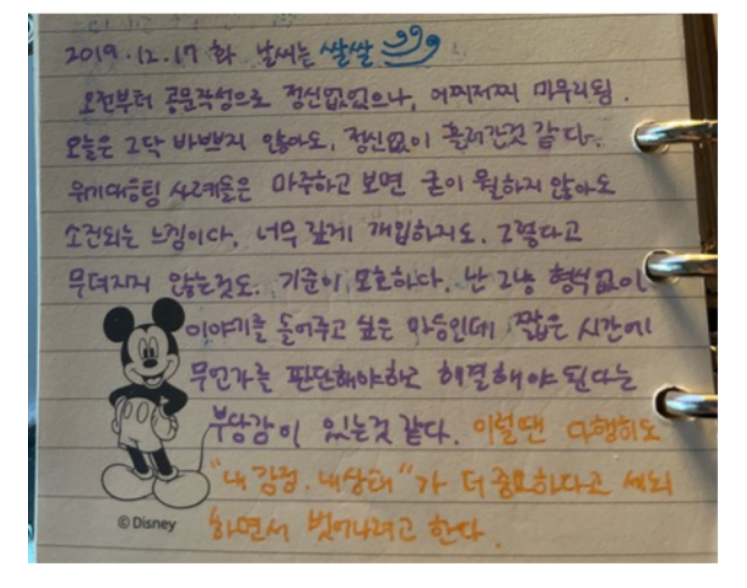 2019.12.17 화 날씨는 쌀쌀
오전부터 공문작성으로 정신없었으나, 어찌저찌 마무리됨.
오늘은 그닥 바쁘지 않아도, 정신없이 흘러간것 같다.
위기대응팀 사례들은 마주하고 보면 굳이 뭘하지 않아도
소진되는 느낌이다. 너무 깊게 개입하지도. 그렇다고
무뎌지지 않는것도. 기준이 모호하다. 난 그냥 형식없이
이야기를 들어주고 싶은 마음인데 짧은 시간에
무언가를 판단해야하고 해결해야 된다는
부담감이 있는것 같다. 이럴땐 다행히도
"내 감정. 내상태"가 더 중요하다고
하면서 벗어나려고 한다.
© Disney